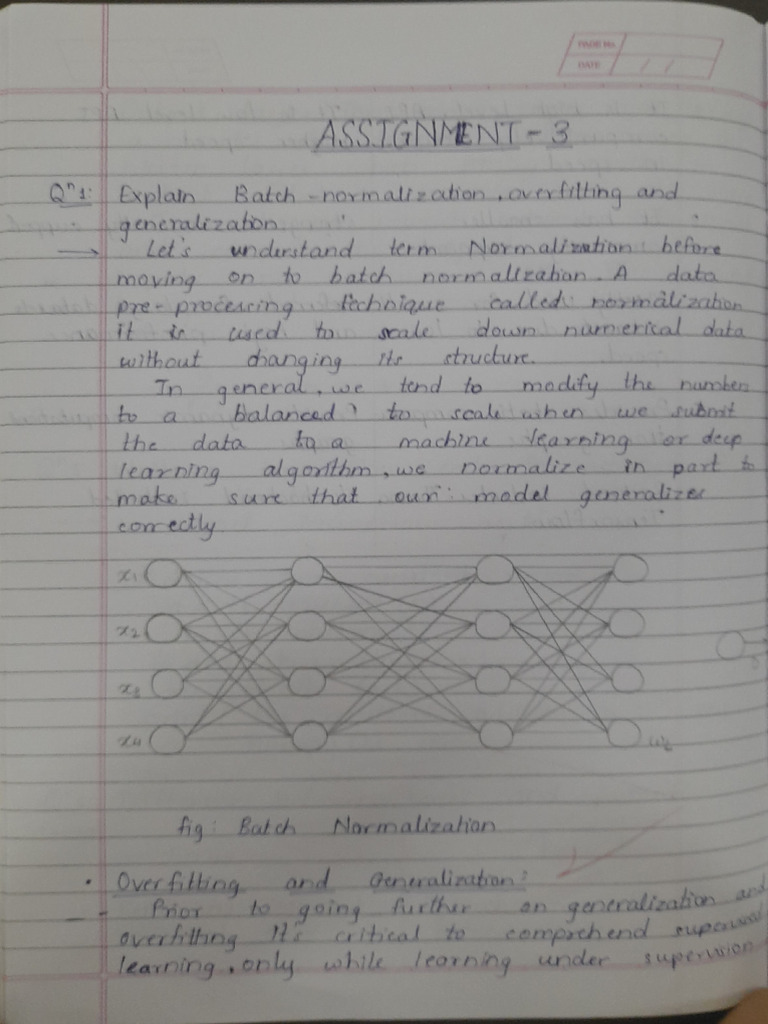 PAGE No.
DATE
ASSIGNMENT - 3
Qⁿ1: Explain Batch -normalization, overfitting and
generalization.
→ Let's understand term Normalization before
moving on to batch normalization. A data
pre-processing technique called normalization
it is used to scale down numerical data
without changing its structure.
In general, we tend to modify the number
to a balanced to scale when we submit
the data to a machine learning or deep
learning algorithm, we normalize in part to
make sure that our model generalizes
correctly
x1
x2
x3
x4
fig: Batch Normalization
• Overfitting and Generalization:
- Prior to going further on generalization and
overfitting It's critical to comprehend supervised
learning, only while learning under supervision